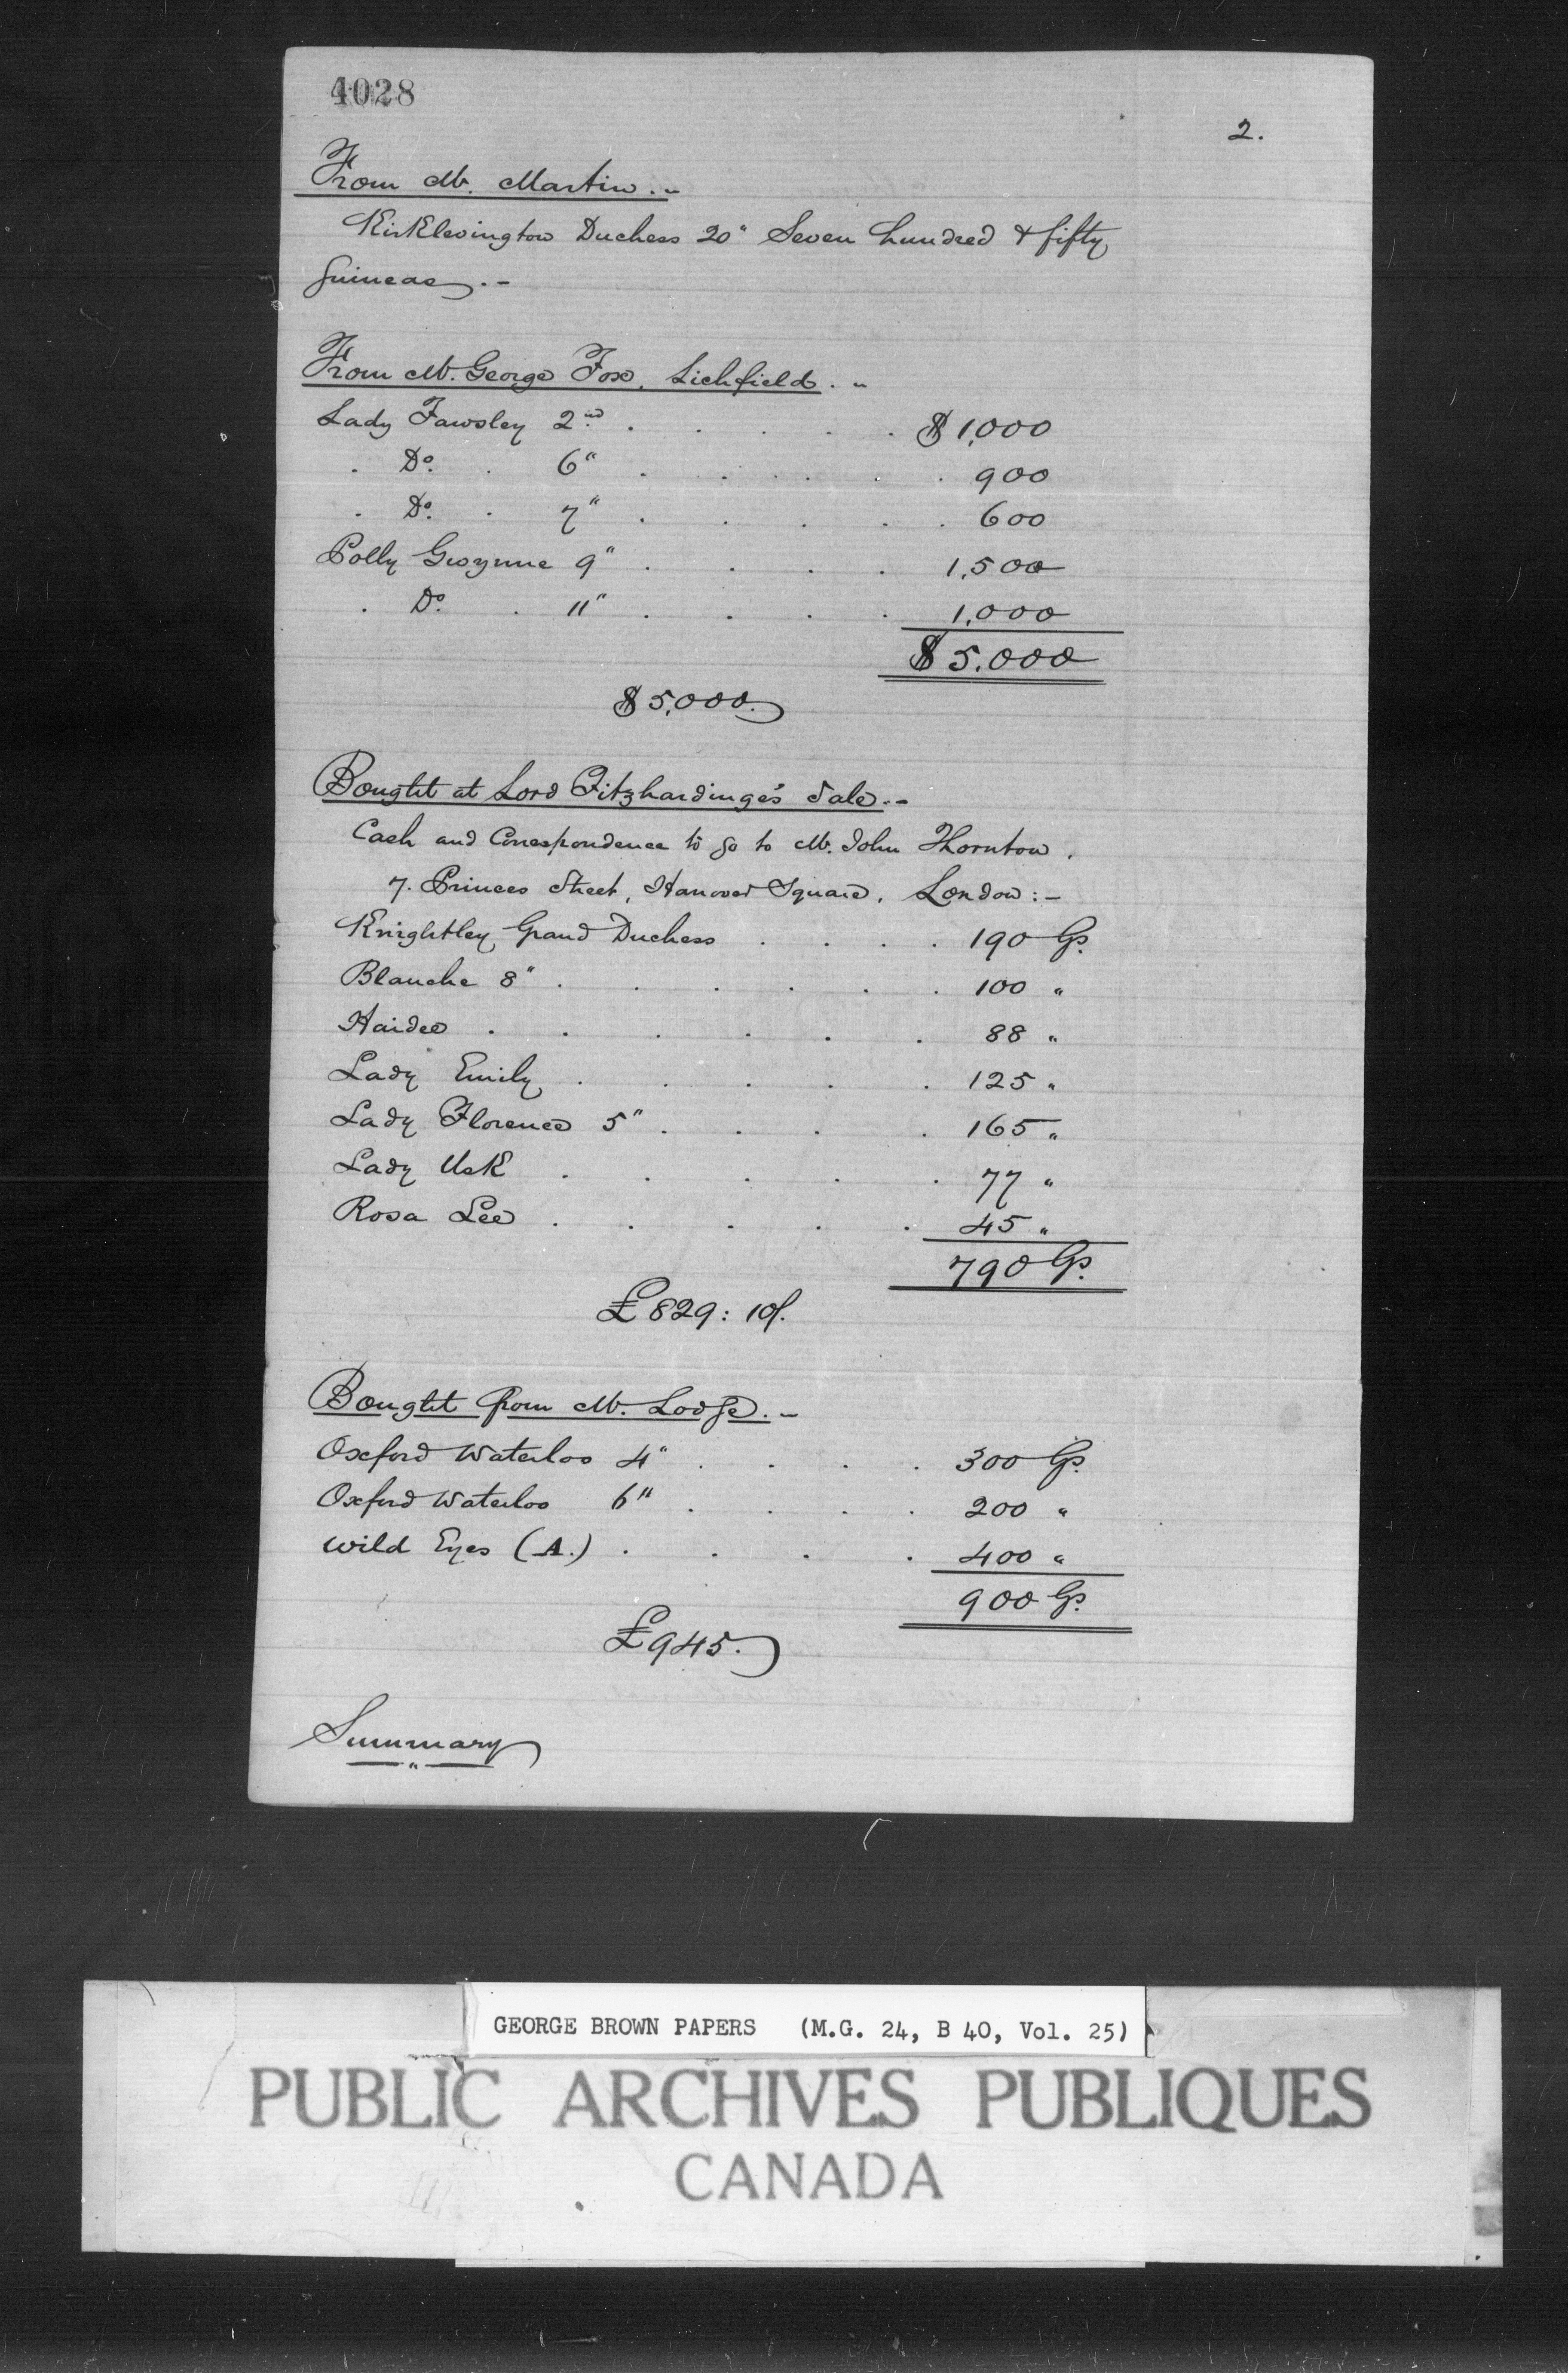 4028
2.
From Mr. Martin.-
Kirklevington Duchess 20" Seven hundred & fifty
Guineas.-
From Mr. George Fox, Lichfield.-
Lady Fawsley 2nd . . . . . $1,000
. Do. . 6" . . . . . 900
. Do. . 7" . . . . . 600
Polly Gwynne 9" . . . . 1,500
. Do. . 11" . . . . 1,000
$5,000
$5,000.
Bought at Lord Fitzhardinge's Sale.-
Cash and Correspondence to go to Mr. John Thornton,
7. Princes Street, Hanover Square, London:-
Knightley Grand Duchess . . . . 190 Gs.
Blanche 8" . . . . . . 100 "
Haidee . . . . . . 88 "
Lady Emily . . . . . 125 "
Lady Florence 5" . . . . 165 "
Lady Usk . . . . . 77 "
Rosa Lee . . . . . 45 "
790 Gs.
£829: 10/.
Bought from Mr. Lodge.-
Oxford Waterloo 4" . . . . 300 Gs.
Oxford Waterloo 6" . . . . 200 "
Wild Eyes (A.) . . . . 400 "
900 Gs.
£945.
Summary
GEORGE BROWN PAPERS (M.G. 24, B 40, Vol. 25)
PUBLIC ARCHIVES PUBLIQUES
CANADA